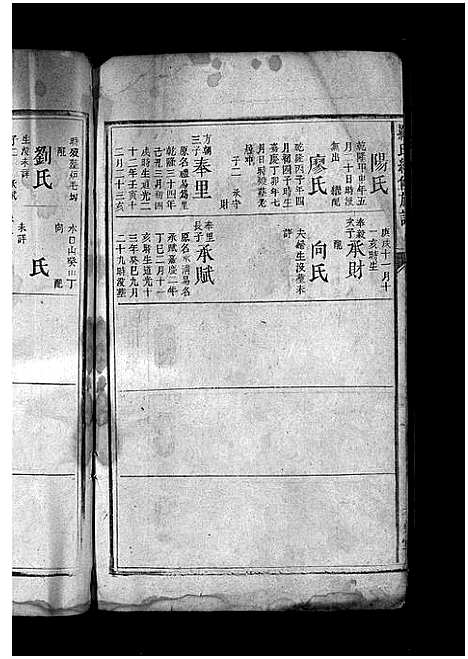 陽氏
乾隆甲申年五
月二十日時歿
無出 繼配
廖氏
乾隆丙子年四
月初四子時生
嘉慶丁卯年七
月日時歿葬老
子二 承守
財
方朝
三子
奉里
原名禮易為
乾隆三十四年
己丑三月初四
戌時生道光二
十二年壬寅十
二月二十三亥
庚戌十一月十
一亥時生
奉毅
次丁
承財
配
向氏
夫繪生歿葬未
詳
奉里
長子
承賦
原名承清易名
承賦嘉慶二年
丁巳二月十一
亥時生道光十
三年癸巳九月
二十九時歿葬
配
劉氏
生歿未詳
水口山癸山丁
向 配
氏
未詳